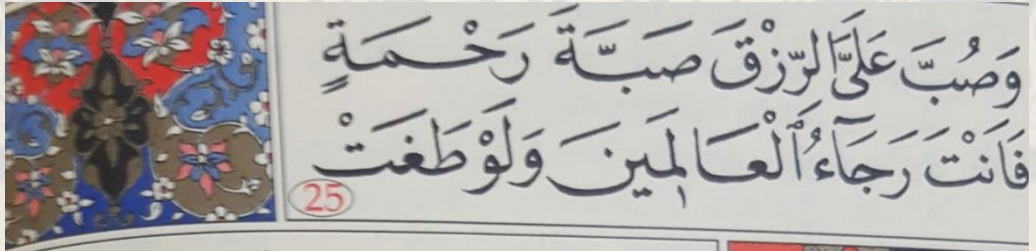 وَصُبَّ عَلَيَّ الرِّزْقَ صَبَّةَ رَحْمَةٍ
فَاَنْتَ رَجَآءُ الْعَالَمِينَ وَلَوْ طَغَتْ
25